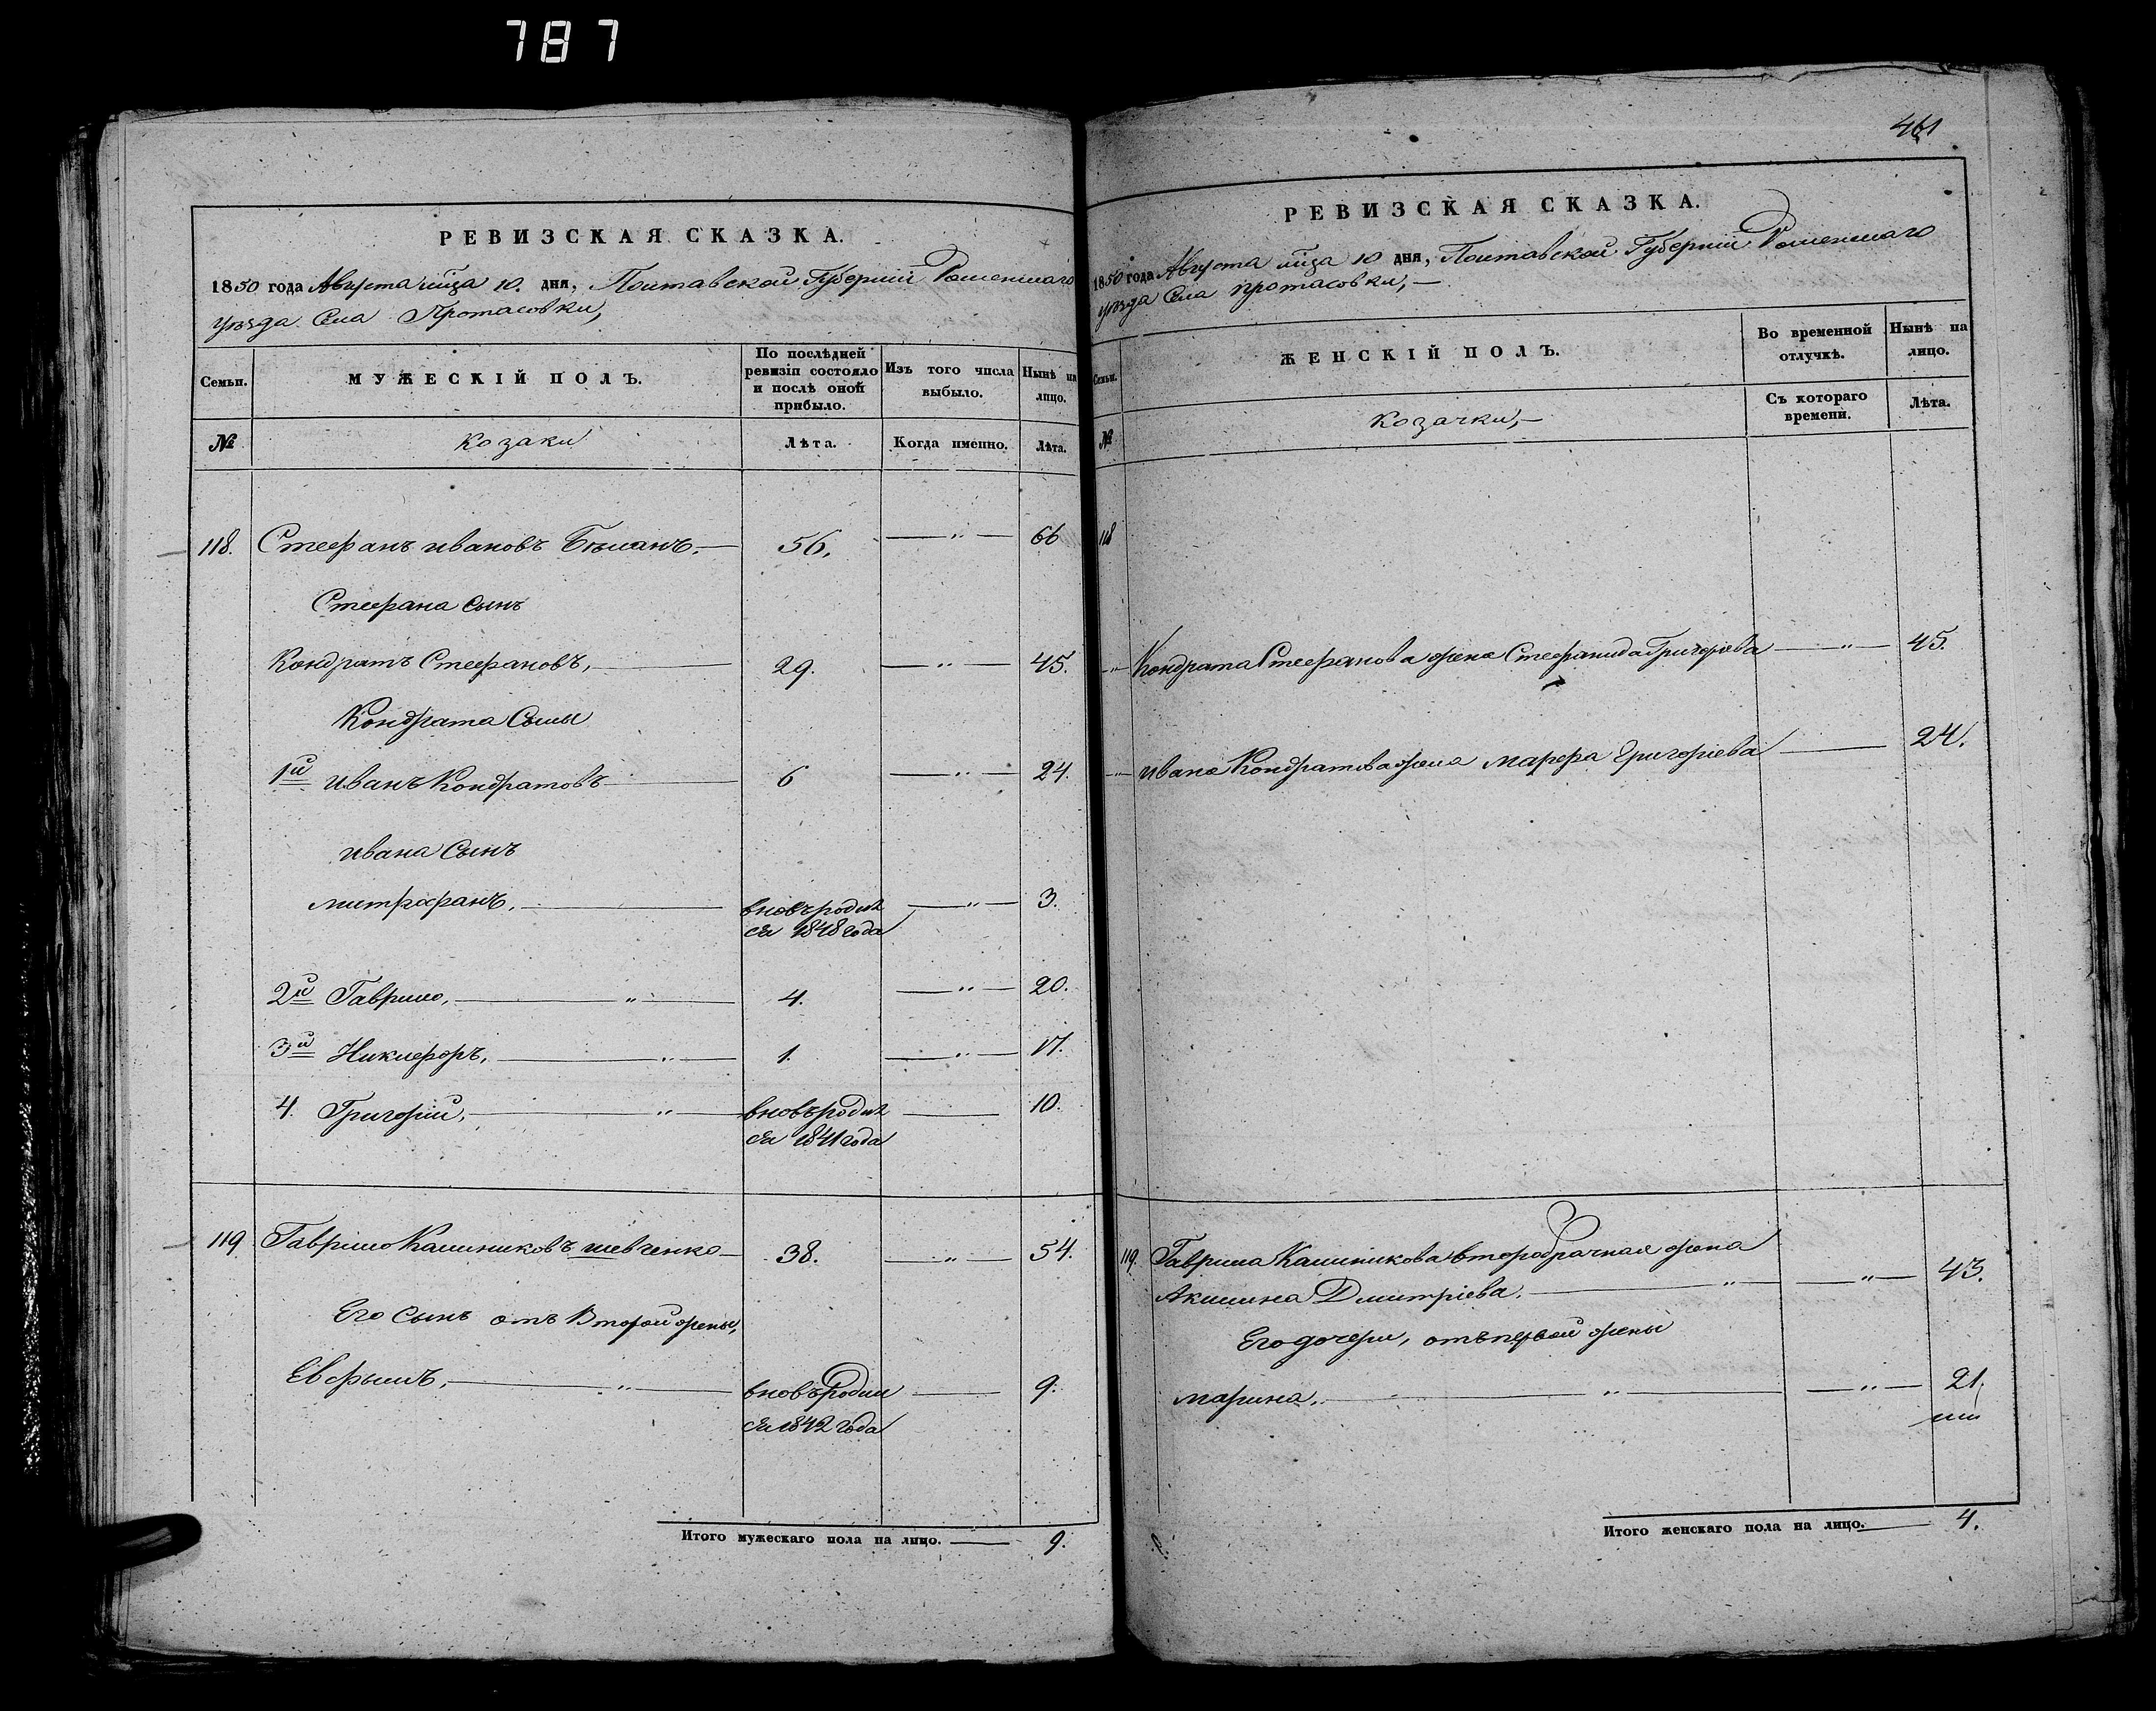 787
РЕВИЗСКАЯ СКАЗКА.
1850 года Августа мца 10. дня, Полтавской Губернии Роменскаго
уѣзда Села Протасовки,
Семьи.
МУЖЕСКІЙ ПОЛЪ.
По послѣдней ревизіи состояло и послѣ оной прибыло.
Изъ того числа выбыло.
Нынѣ на лицо.
№
Козаки
Лѣта.
Когда именно.
Лѣта.
118. Стефанъ ивановъ 56. —„— 66
Стефана сынъ
Кондратъ Стефановъ, 29. —„— 45.
Кондрата Сыны
1й иванъ Кондратовъ 6 —„— 24.
ивана Сынъ
митрофанъ, вновь родил —„— 3.
ся 1848 года
2й Гаврило, „ 4. —„— 20.
3й Никифоръ, „ 1. —„— 17.
4. Григорій, „ вновь родил — 10.
ся 1841 года
119 Гаврило Калиниковъ шевченко 38. —„— 54.
Его Сынъ отъ Второй жены,
Евфимъ, „ вновь Родил — 9.
ся 1842 года
Итого мужескаго пола на лицо. — 9.
461
РЕВИЗСКАЯ СКАЗКА.
1850 года Августа мца 10 дня, Полтавской Губерніи Роменскаго
уѣзда Села протасовки, —
Семьи.
ЖЕНСКІЙ ПОЛЪ.
Во временной отлучкѣ.
Нынѣ на лицо.
№
Козачки, —
Съ котораго времени.
Лѣта.
118
„ Кондрата Стефанова жена Стефанида Григорьева —„— 45.
„ ивана Кондратова жена марфа Григорьева — 24.
119. Гаврила Калиникова второбрачная жена
Акилина Дмитріева. „ —„— 43.
Его дочери, отъ первой жены
марина. „ —„— 21.
Итого женскаго пола на лицо. — 4.